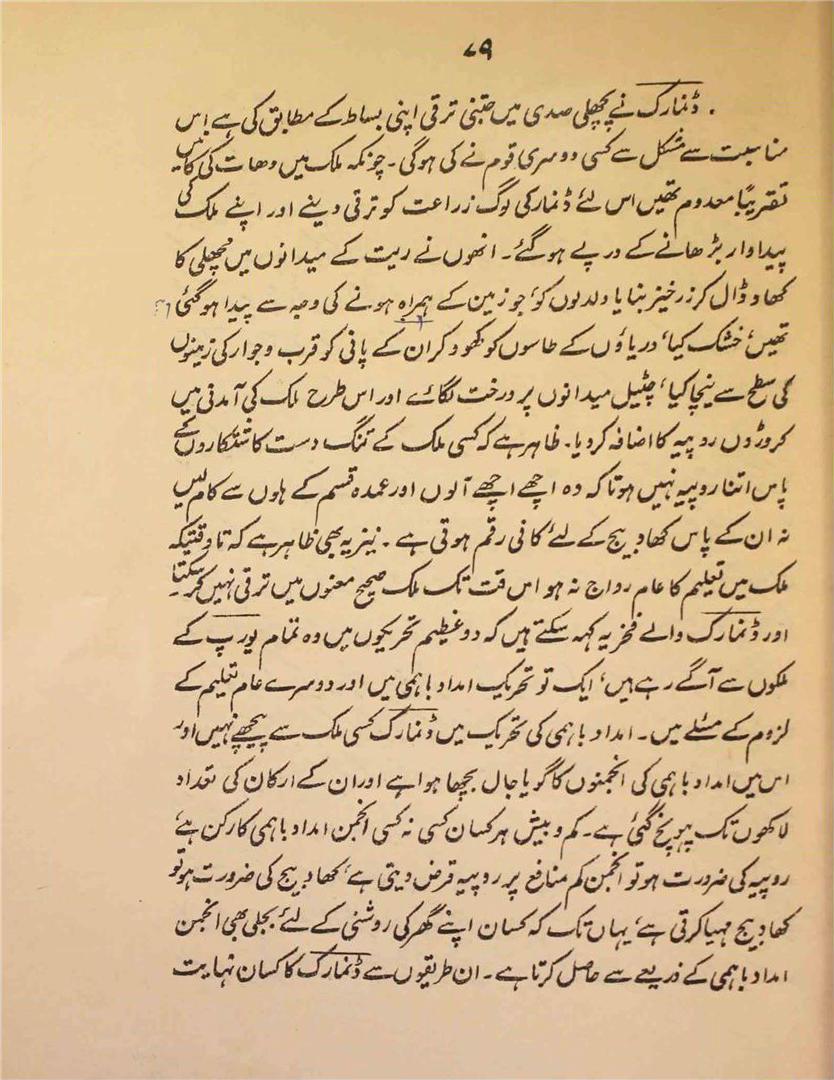 ۷۹
۔ ڈنمارک نے پچھلی صدی میں جتنی ترقی اپنی بساط کے مطابق کی ہے اس
مناسبت سے مشکل سے کسی دوسری قوم نے کی ہوگی۔ چونکہ ملک میں دھات کی کانیں
تقریباً معدوم تھیں اس لئے ڈنمارکی لوگ زراعت کو ترقی دینے اور اپنے ملک کی
پیداوار بڑھانے کے درپے ہوگئے۔ انھوں نے ریت کے میدانوں میں مچھلی کا
کھاد ڈال کر زرخیز بنایا دلدلوں کو، جو زمین کے ہمراہ ہونے کی وجہ سے پیدا ہوگئی
تھیں، خشک کیا، دریاؤں کے طاسوں کو کھود کر ان کے پانی کو قرب و جوار کی زمینوں
کی سطح سے نیچا کیا، چٹیل میدانوں پر درخت لگائے اور اس طرح ملک کی آمدنی میں
کروڑوں روپیہ کا اضافہ کر دیا۔ ظاہر ہے کہ کسی ملک کے تنگ دست کاشتکاروں کے
پاس اتنا روپیہ نہیں ہوتا کہ وہ اچھے اچھے آلوں اور عمدہ قسم کے ہلوں سے کام لیں
نہ ان کے پاس کھاد بیج کے لئے کافی رقم ہوتی ہے۔ نیز یہ بھی ظاہر ہے کہ تاوقتیکہ
ملک میں تعلیم کا عام رواج نہ ہو اس وقت تک ملک صحیح معنوں میں ترقی نہیں کر سکتا۔
اور ڈنمارک والے فخریہ کہہ سکتے ہیں کہ دو عظیم تحریکوں میں وہ تمام یورپ کے
ملکوں سے آگے رہے ہیں، ایک تو تحریک امداد باہمی میں اور دوسرے عام تعلیم کے
لزوم کے مسئلے میں۔ امداد باہمی کی تحریک میں ڈنمارک کسی ملک سے پیچھے نہیں اور
اس میں امداد باہمی کی انجمنوں کا گویا جال بچھا ہوا ہے اور ان کے ارکان کی تعداد
لاکھوں تک پہونچ گئی ہے۔ کم و بیش ہر کسان کسی نہ کسی انجمن امداد باہمی کا رکن ہے،
روپیہ کی ضرورت ہو تو انجمن کم منافع پر روپیہ قرض دیتی ہے، کھاد بیج کی ضرورت ہو تو
کھاد بیج مہیا کرتی ہے، یہاں تک کہ کسان اپنے گھر کی روشنی کے لئے بجلی بھی انجمن
امداد باہمی کے ذریعے سے حاصل کرتا ہے۔ ان طریقوں سے ڈنمارک کا کسان نہایت